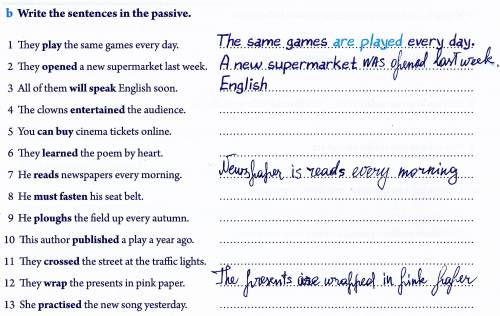 b Write the sentences in the passive.
1 They play the same games every day. The same games are played every day.
2 They opened a new supermarket last week. A new supermarket was opened last week.
3 All of them will speak English soon. English
4 The clowns entertained the audience.
5 You can buy cinema tickets online.
6 They learned the poem by heart.
7 He reads newspapers every morning. Newspaper is reads every morning
8 He must fasten his seat belt.
9 He ploughs the field up every autumn.
10 This author published a play a year ago.
11 They crossed the street at the traffic lights.
12 They wrap the presents in pink paper. The presents are wrapped in pink paper
13 She practised the new song yesterday.